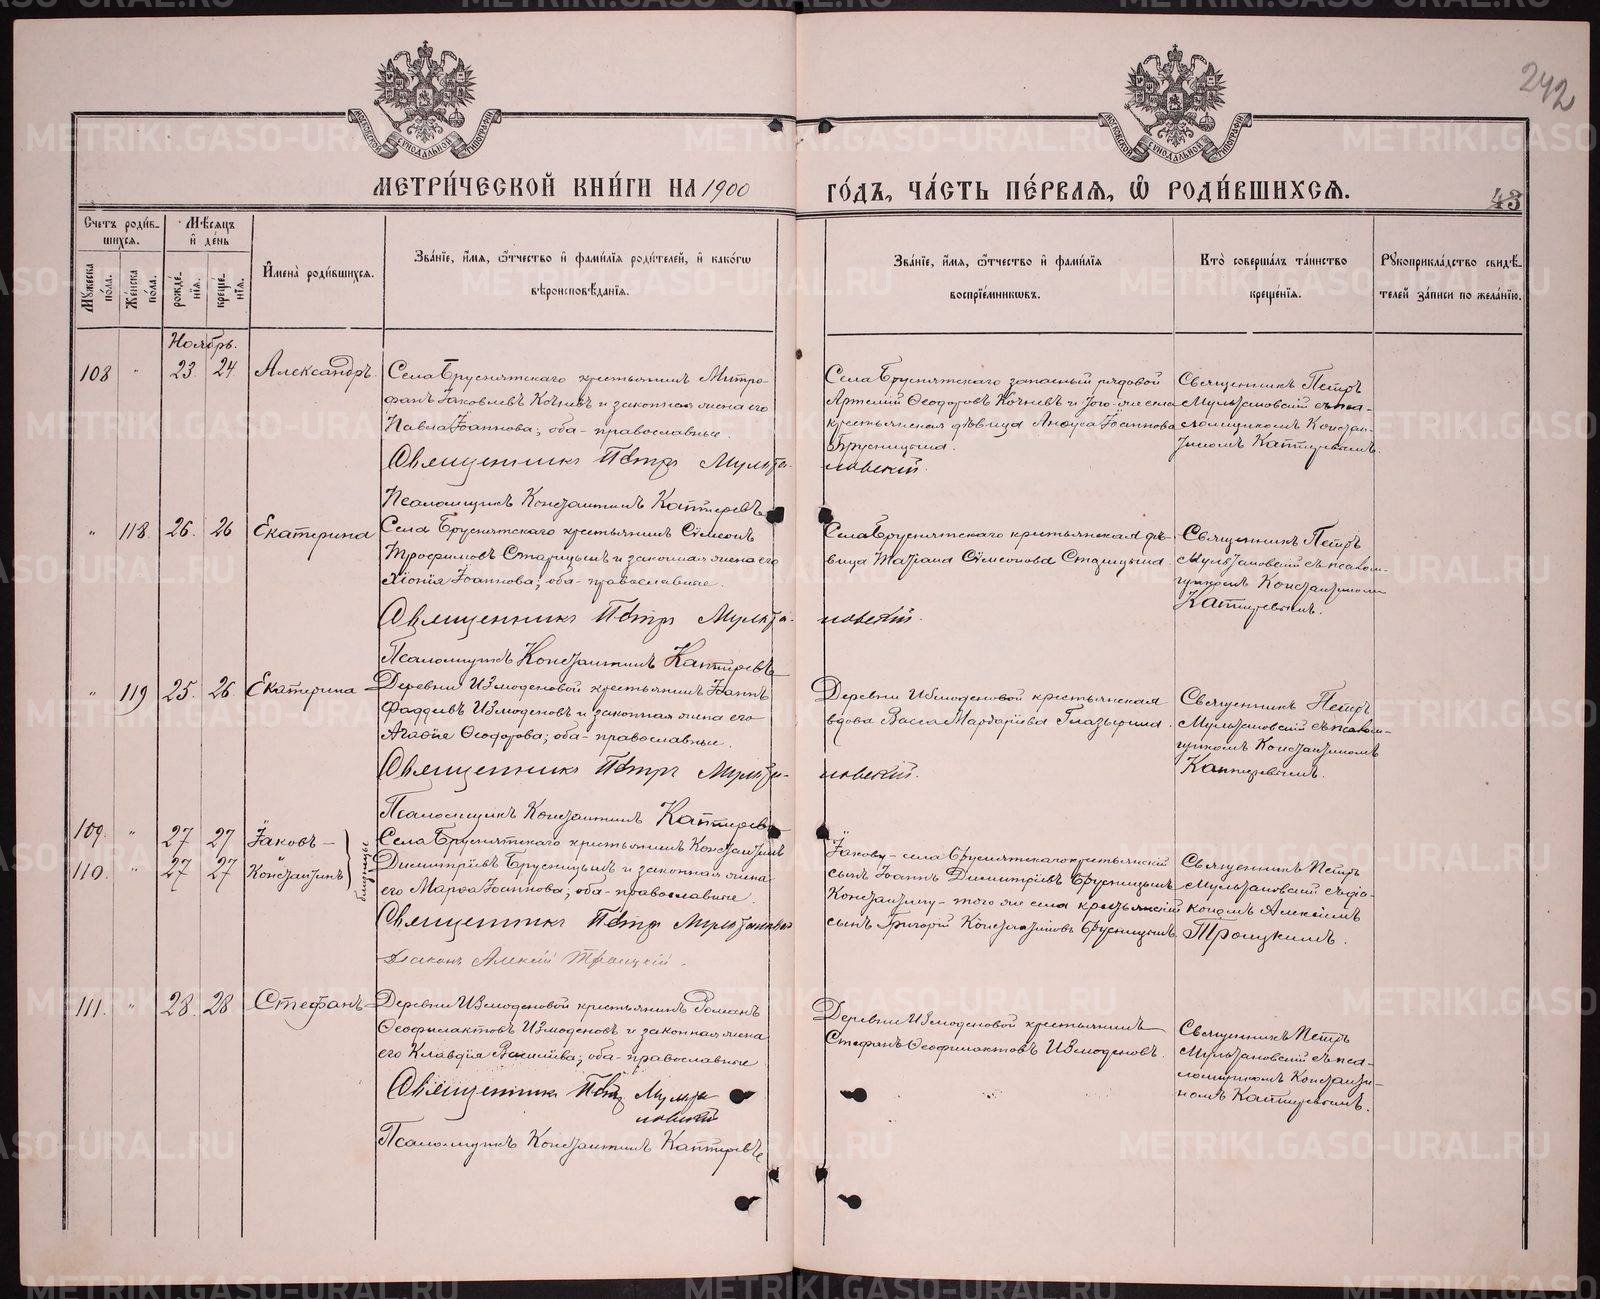 242
МЕТРИ́ЧЕСКОЙ КНИ́ГИ НА 1900
ГО́ДЪ, ЧА́СТЬ ПЕ́РВАЯ, Ѡ҆ РОДИ́ВШИХСЯ.
43
Счетъ роди́в-
шихся.
Мꙋ́жеска по́ла.
Же́нска по́ла.
Мѣ́сяцъ
и҆ де́нь
рожде́нїя.
креще́нїя.
И҆мена̀ роди́вшихся.
Зва́нїе, и҆́мя, ѻ҆́тчество и҆ фами́лїя роди́телей, и҆ како́гѡ
вѣроисповѣ́данїя.
Зва́нїе, и҆́мя, ѻ҆́тчество и҆ фами́лїя
воспрїе́мникѡвъ.
Кто̀ соверша́лъ та́инство
креще́нїя.
Рꙋкоприкла́дство свидѣ́-
телей за́писи по жела́нїю.
Ноябрь.
108 " 23. 24 Александръ.
Села Бруснятскаго крестьянинъ Митро-
фанъ Іаковлевъ Кочневъ и законная жена его
Павла Іоаннова; оба-православные.
Священникъ Петръ Мультановскій.
Псаломщикъ Константинъ Каптеревъ
Села Бруснятскаго запасный рядовой
Артемій Ѳеодоровъ Кочневъ и того-же села
крестьянская дѣвица Іоаннова
Брусницына.
Священникъ Петръ
Мультановскій съ пса-
ломщикомъ Констан-
тиномъ Каптеревымъ.
" 118. 26. 26 Екатерина
Села Бруснятскаго крестьянинъ Сѵмеонъ
Трофимовъ Старицынъ и законная жена его
Хіонія Іоаннова; оба-православные.
Священникъ Петръ Мультановскій.
Псаломщикъ Константинъ Каптеревъ
Села Бруснятскаго крестьянская дѣ-
вица Татіана Сѵмеонова Старицына.
Священникъ Петръ
Мультановскій съ псалом-
щикомъ Константиномъ
Каптеревымъ.
" 119 25. 26 Екатерина
Деревни Измоденовой крестьянинъ Іоаннъ
Фаддеевъ Измоденовъ и законная жена его
Агафія Ѳеодорова; оба-православные.
Священникъ Петръ Мультановскій.
Псаломщикъ Константинъ Каптеревъ
Деревни Измоденовой крестьянская
вдова Васса Мардаріева Глазырина.
Священникъ Петръ
Мультановскій съ псалом-
щикомъ Константиномъ
Каптеревымъ.
109. " 27 27 Іаковъ
110. " 27 27 Константинъ
близнецы
Села Бруснятскаго крестьянинъ Константинъ
Димитріевъ Брусницынъ и законная жена
его Марфа Іоаннова; оба-православные.
Священникъ Петръ Мультановскій
Діаконъ Алексій Троицкій.
Іакову - села Бруснятскаго крестьянскій
сынъ Іоаннъ Димитріевъ Брусницынъ
Константину - того же села крестьянскій
сынъ Григорій Константиновъ Брусницынъ.
Священникъ Петръ
Мультановскій съ діа-
кономъ Алексіемъ
Троицкимъ.
111. " 28. 28 Стефанъ
Деревни Измоденовой крестьянинъ Романъ
Ѳеофилактовъ Измоденовъ и законная жена
его Клавдія; оба-православные.
Священникъ Петръ Мульта
новскій
Псаломщикъ Константинъ Каптеревъ
Деревни Измоденовой крестьянинъ
Стефанъ Ѳеофилактовъ Измоденовъ.
Священникъ Петръ
Мультановскій съ пса-
ломщикомъ Константи-
номъ Каптеревымъ.
METRIKI.GASO-URAL.RU